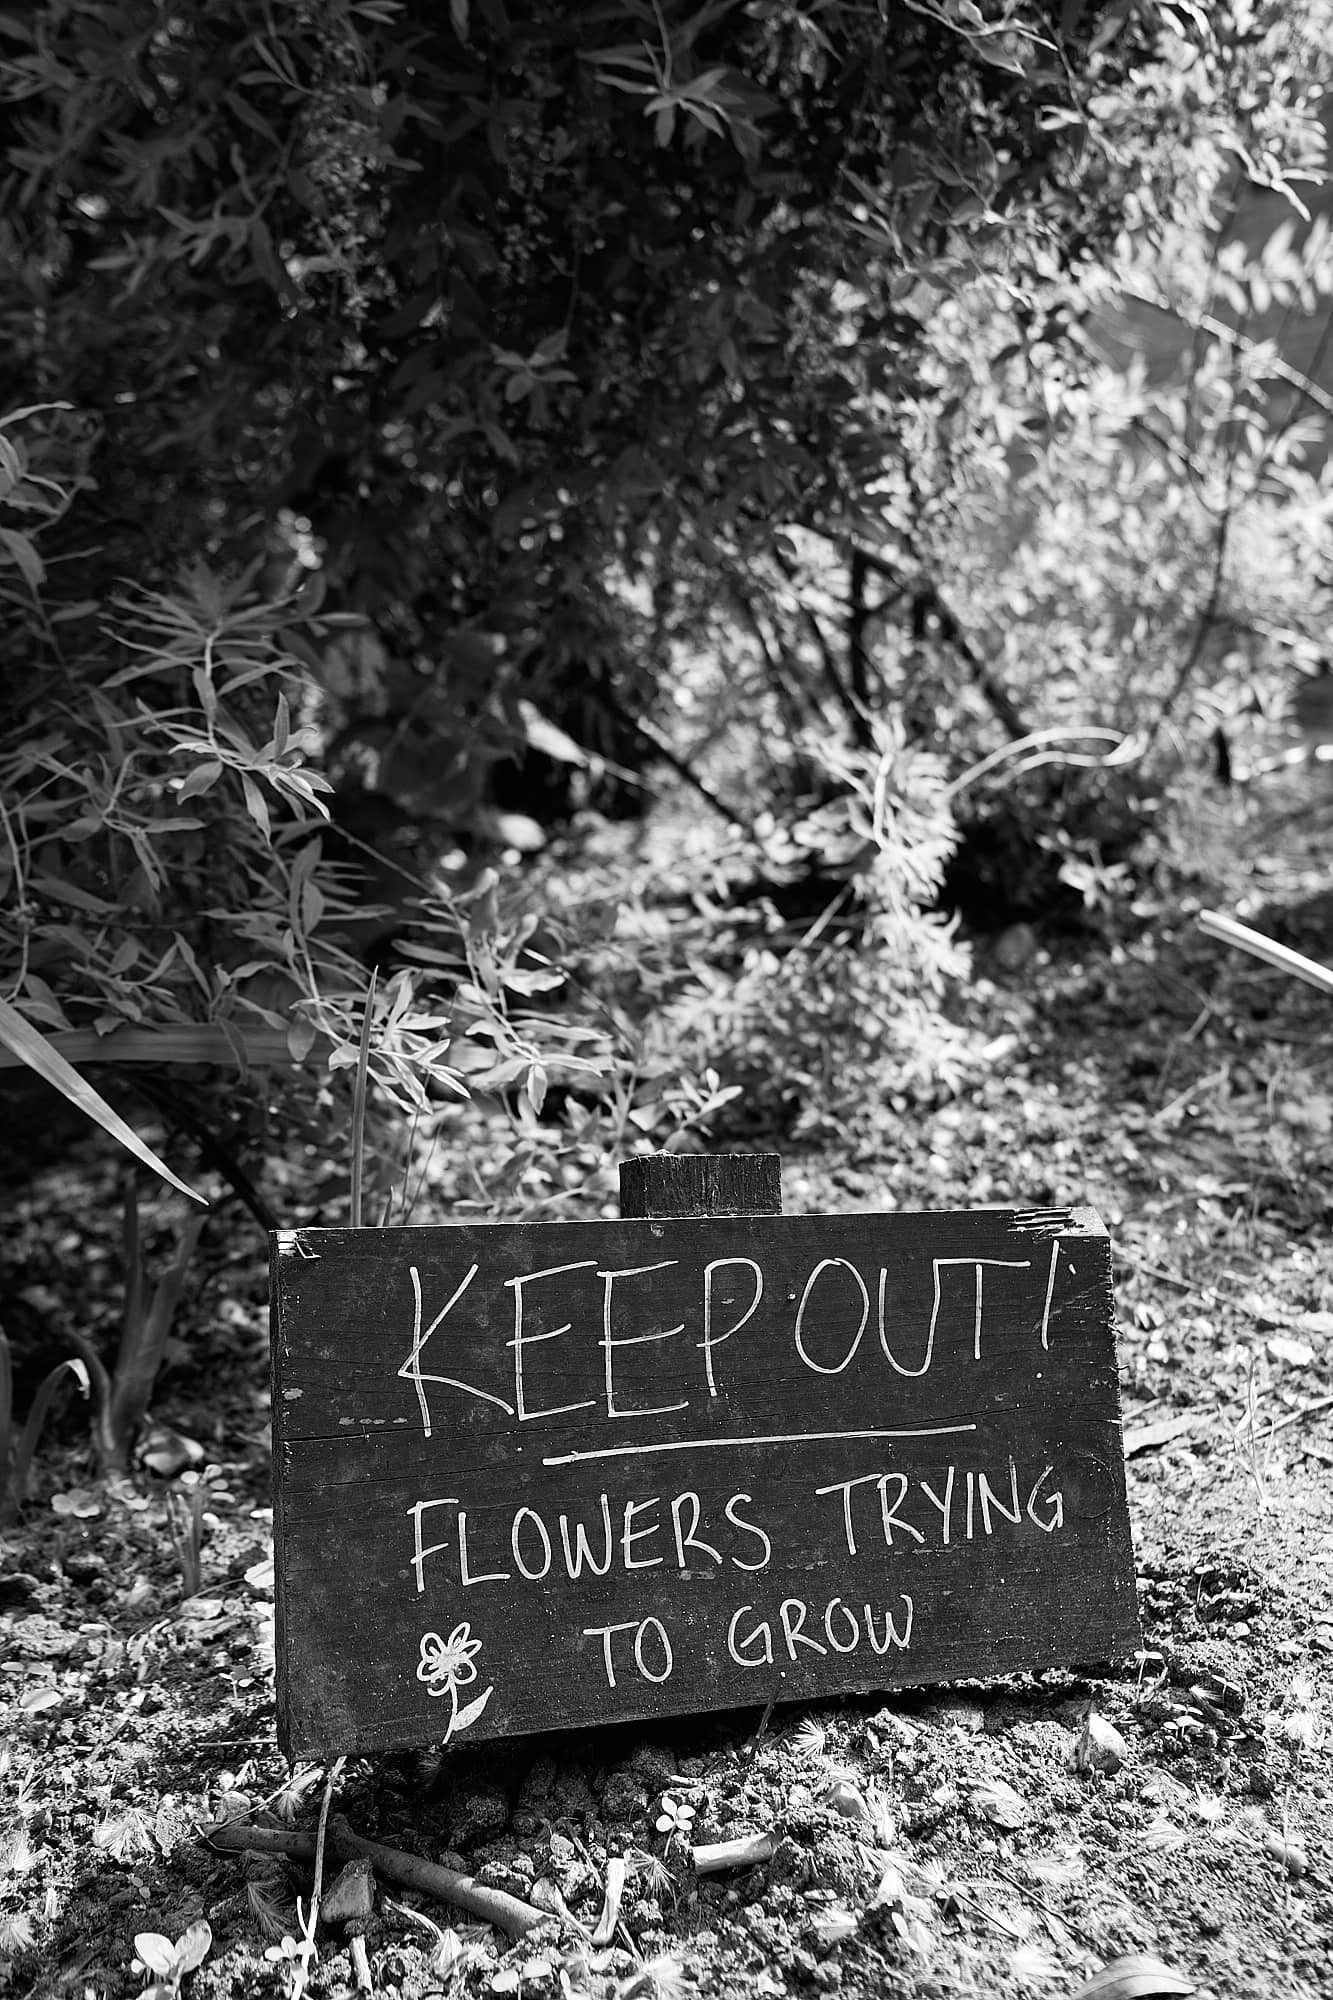 KEEP OUT!
FLOWERS TRYING
TO GROW